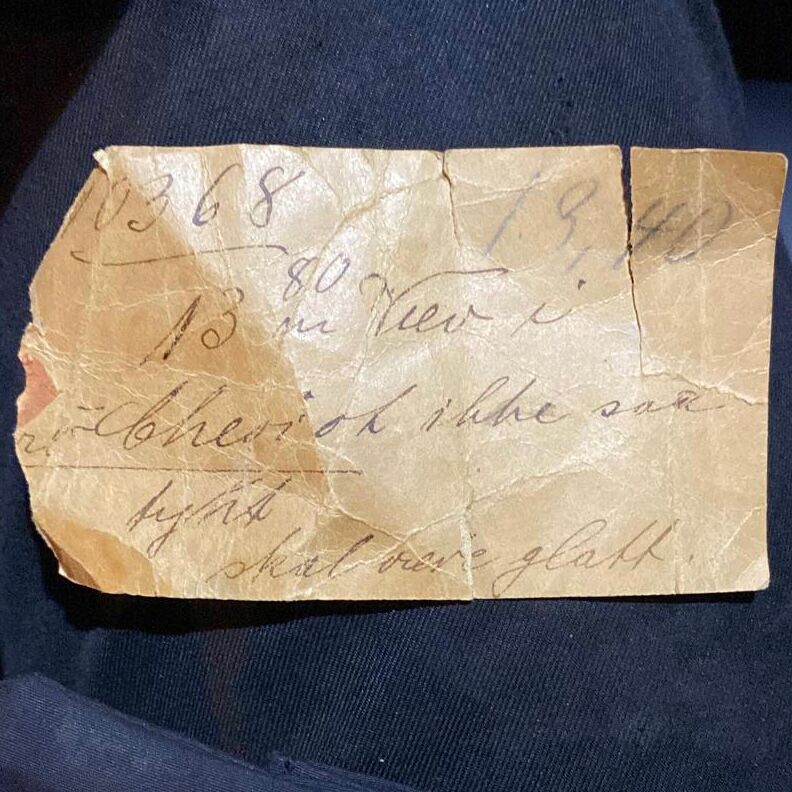 10368 13,40
13 80 m Vev i
Cheviot ikke saa
tykt
skal være glatt.